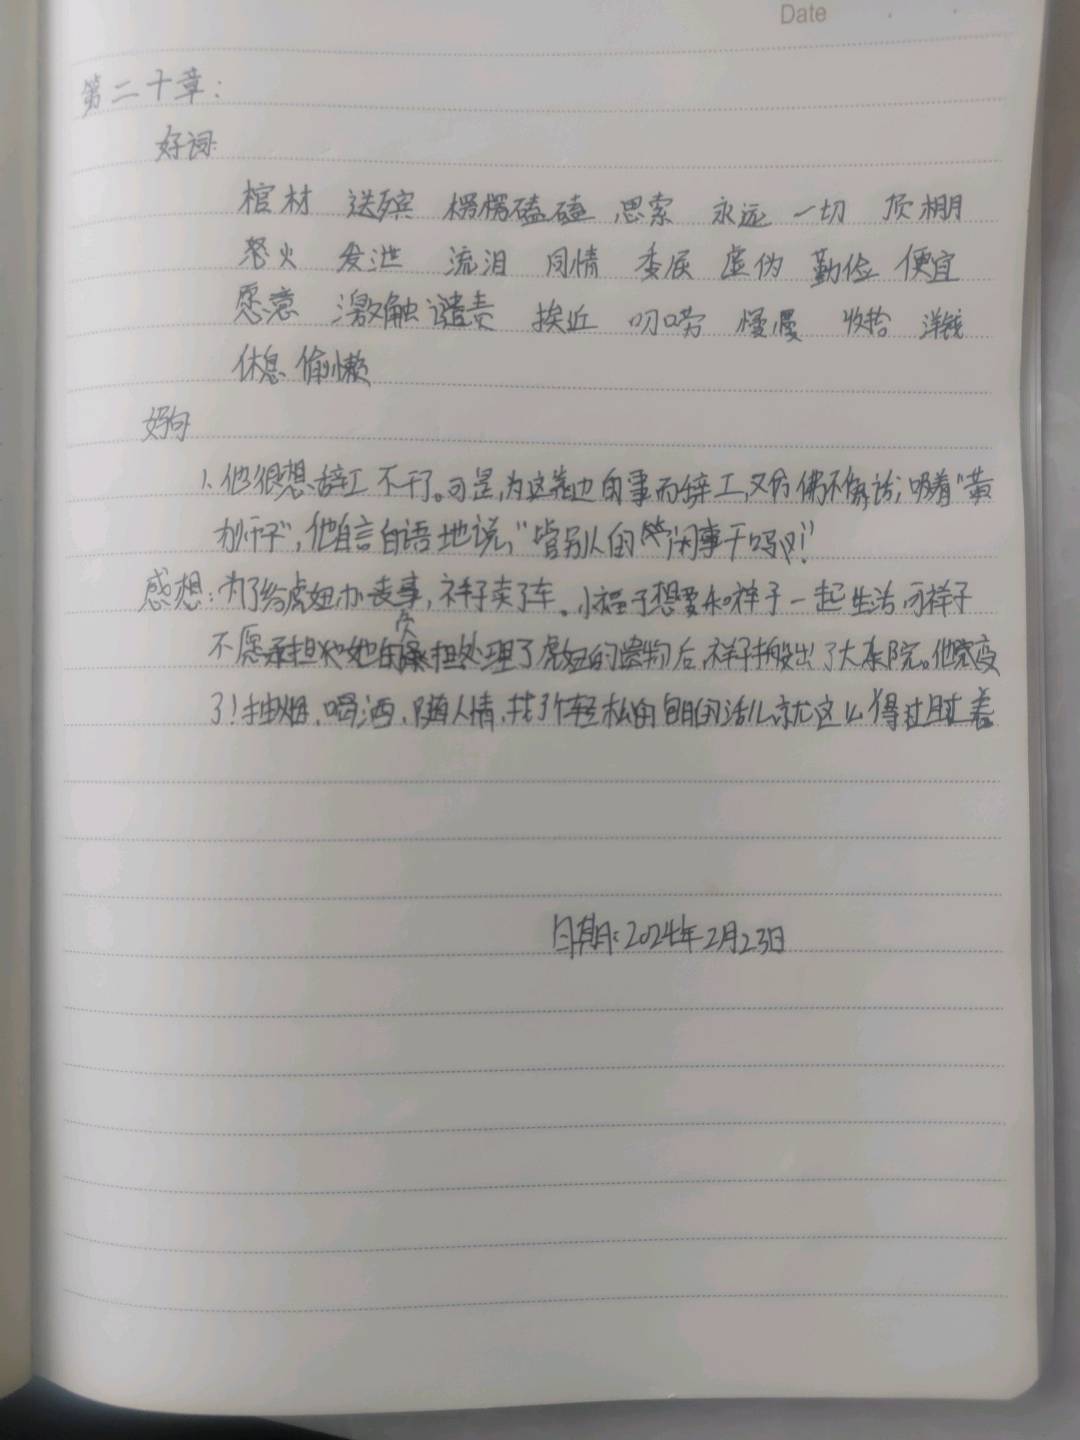 Date
第二十章：
好词
棺材 送殡 楞楞磕磕 思索 永远 一切 顶棚
怒火 发泄 流泪 同情 委屈 虚伪 勤俭 便宜
愿意 激触 谴责 挨近 叨唠 慢慢 收拾 洋钱
休息 偷懒
好句
1、他很想辞工不干了。可是,为这点边的事而辞工,又仿佛不像话;吸着“黄
狮子”,他自言自语地说,“管别人的闲事干吗?!”
感想:为了给虎妞办丧事,祥子卖了车。小福子想要和祥子一起生活,可祥子
不愿承担她的负担处理了虎妞的遗物后,祥子搬出了大杂院。他完变
了!抽烟、喝酒、随人情,找了个轻松的包月的活儿,就这么得过且过着
日期:2024年2月23日